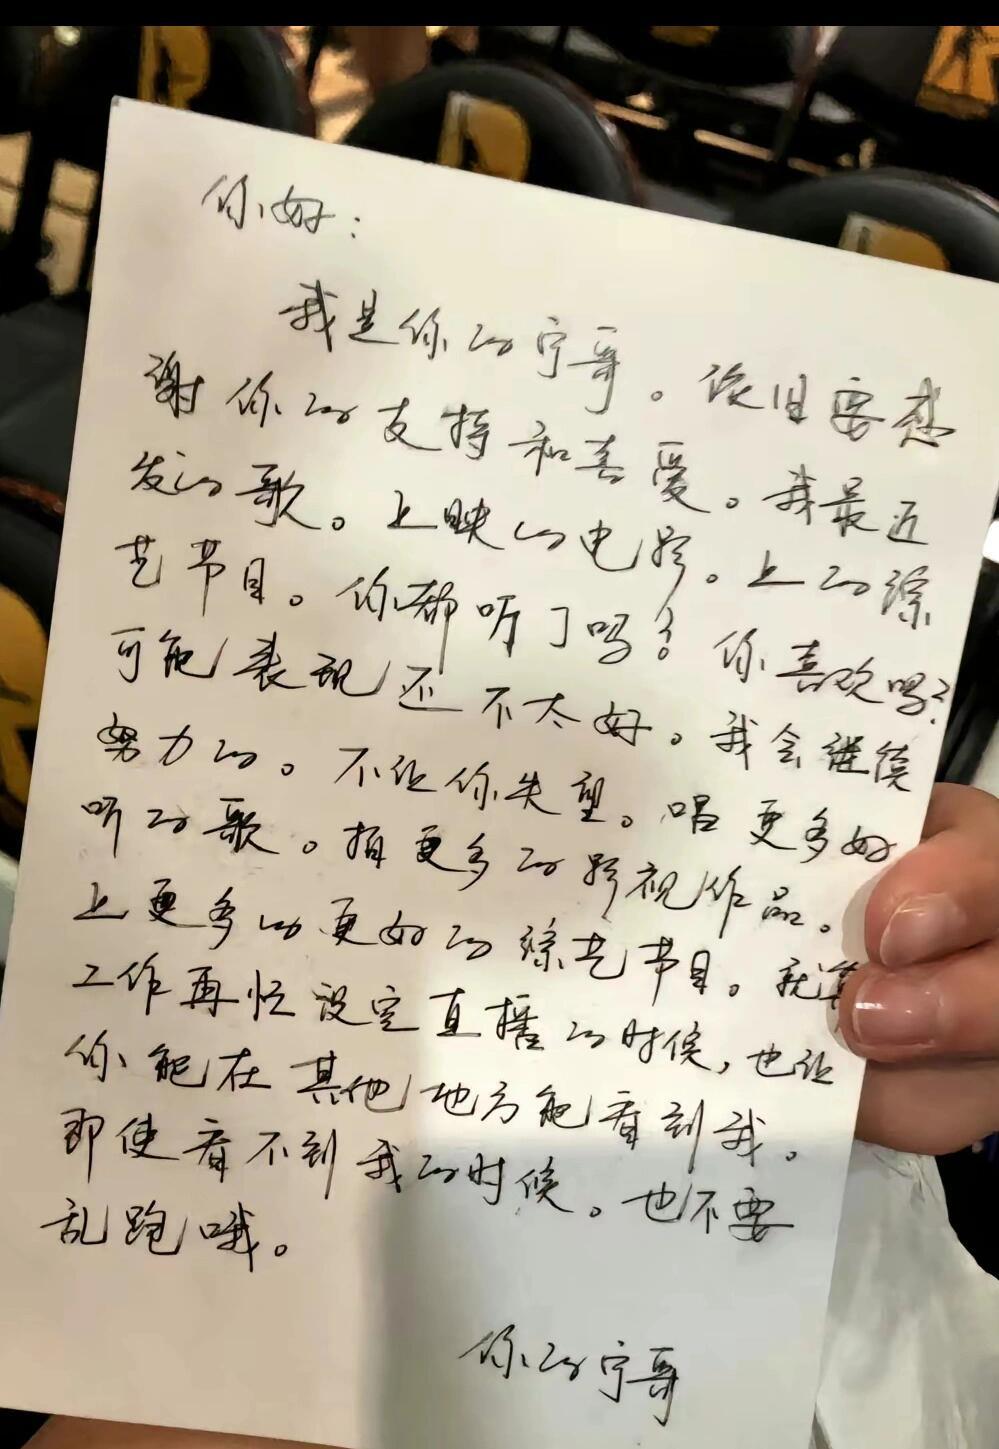 你好：
我是你的宁哥。依旧要感
谢你的支持和喜爱。我最近
发的歌。上映的电影。上的综
艺节目。你都听了吗？你喜欢吗？
可能表现还不太好。我会继续
努力的。不让你失望。唱更多好
听的歌。拍更多的影视作品。
上更多的更好的综艺节目。就算
工作再忙没空直播的时候，也让
你能在其他地方能看到我。
即使看不到我的时候。也不要
乱跑哦。
你的宁哥